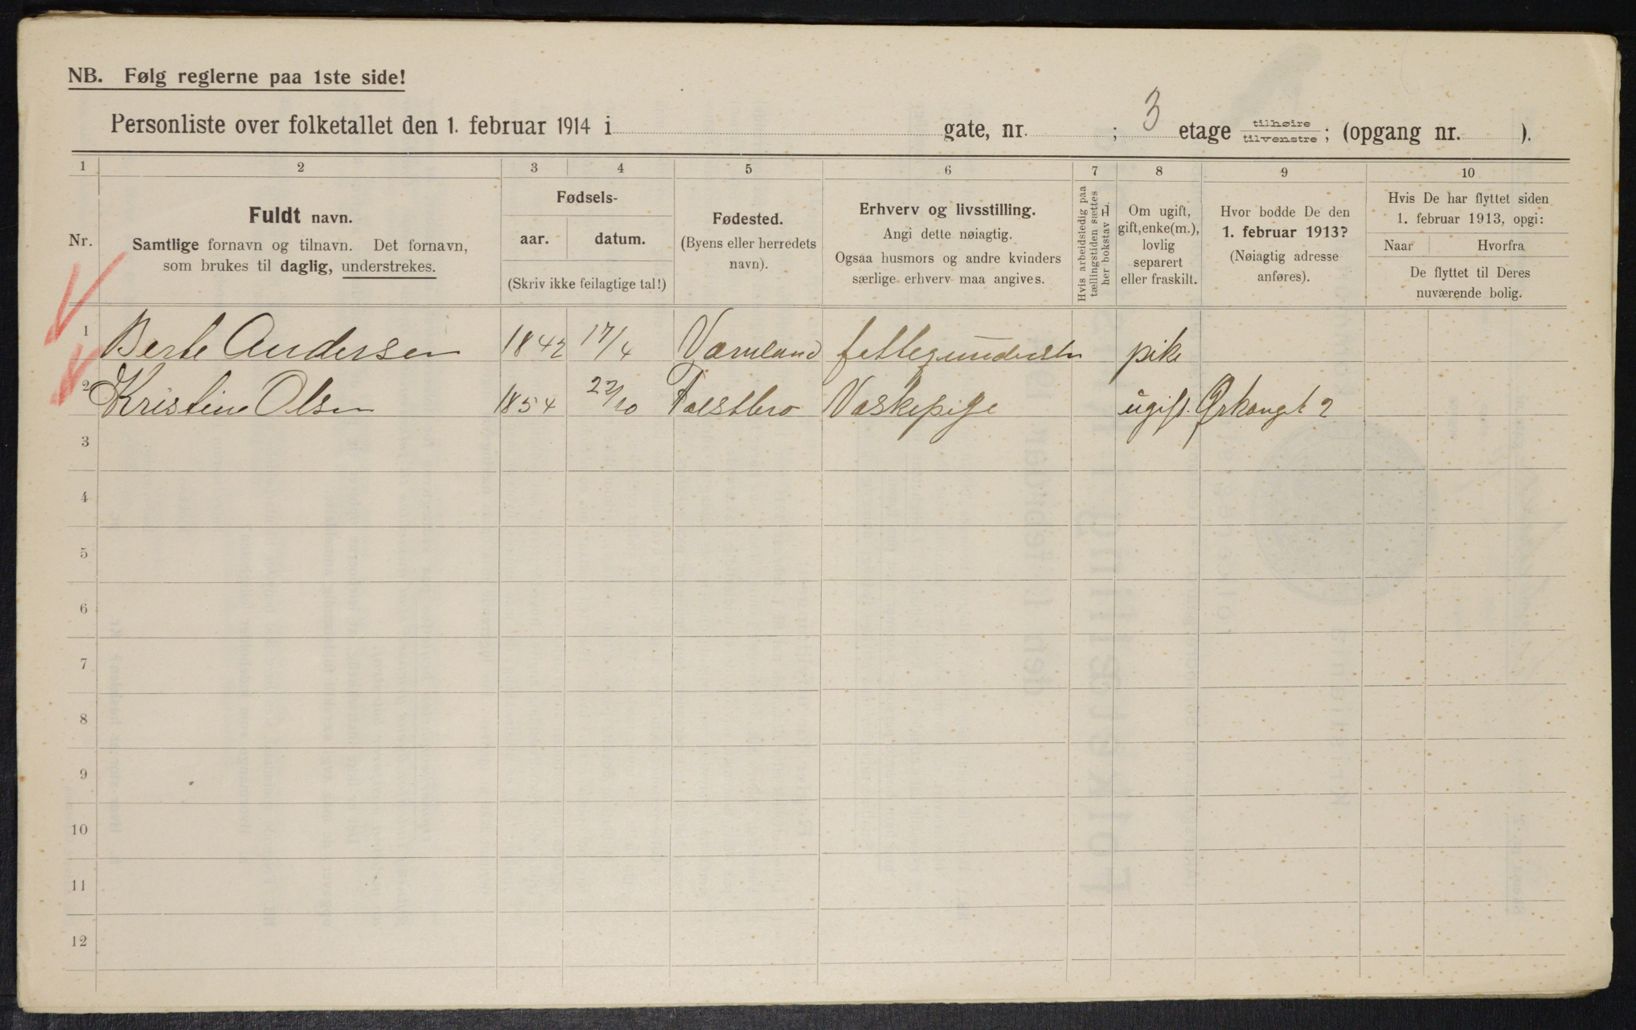 NB. Følg reglerne paa 1ste side!
Personliste over folketallet den 1. februar 1914 i gate, nr. ; 3 etage tilhøire tilvenstre ; (opgang nr. ).
1 2 3 4 5 6 7 8 9 10
Nr.
Fuldt navn.
Samtlige fornavn og tilnavn. Det fornavn,
som brukes til daglig, understrekes.
Fødsels-
aar. datum.
(Skriv ikke feilagtige tal!)
Fødested.
(Byens eller herredets
navn).
Erhverv og livsstilling.
Angi dette nøiagtig.
Ogsaa husmors og andre kvinders
særlige erhverv maa angives.
Hvis arbeidsledig paa
tællingstiden sættes
her bokstav L.
Om ugift,
gift, enke(m.),
lovlig
separert
eller fraskilt.
Hvor bodde De den
1. februar 1913?
(Nøiagtig adresse
anføres).
Hvis De har flyttet siden
1. februar 1913, opgi:
Naar Hvorfra
De flyttet til Deres
nuværende bolig.
1 Berte Andersen 1842 17/4 Værmland pike
2 Kristine Olsen 1854 27/10 Vaskepige ugift.
3
4
5
6
7
8
9
10
11
12